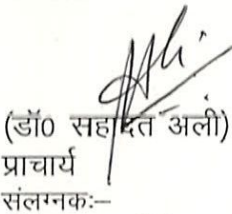 (डॉ0 सहादत अली)
प्राचार्य
संलग्नकः–